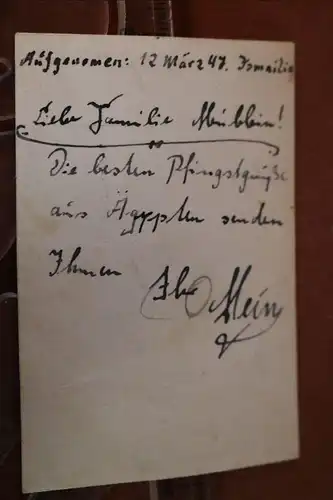 Aufgenomen: 12 März 47. Ismailia
Liebe Familie Müblein!
Die besten Pfingstgrüße
aus Ägypten senden
Ihnen Ihr